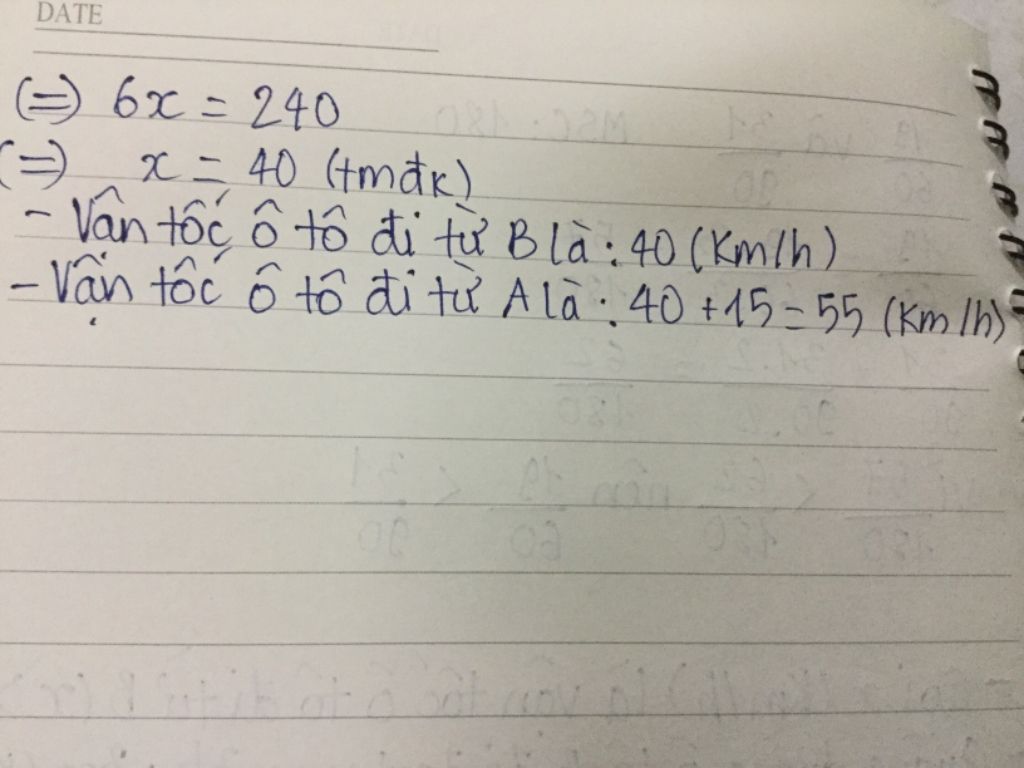 DATE
(=) 6x = 240
(=) x = 40 (tmđk)
- Vận tốc ô tô đi từ B là : 40 (Km/h)
- Vận tốc ô tô đi từ A là : 40 + 15 = 55 (Km/h)